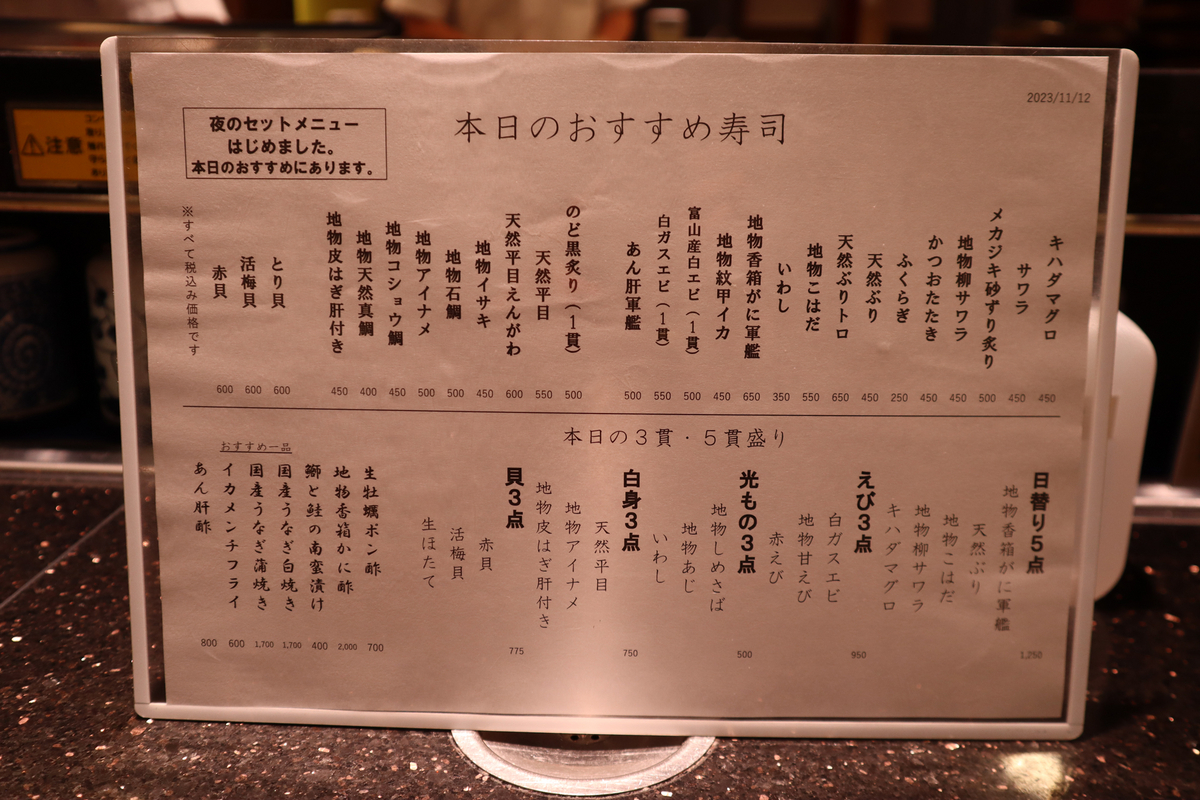 2023/11/12
本日のおすすめ寿司
夜のセットメニュー
はじめました。
本日のおすすめにあります。
キハダマグロ 450
サワラ 450
メカジキ砂ずり炙り 500
地物柳サワラ 450
かつおたたき 450
ふくらぎ 250
天然ぶり 450
天然ぶりトロ 650
地物こはだ 550
いわし 350
地物香箱がに軍艦 650
地物紋甲イカ 450
富山産白エビ（1貫） 500
白ガスエビ（1貫） 550
あん肝軍艦 500
のど黒炙り（1貫） 500
天然平目 550
天然平目えんがわ 600
地物イサキ 450
地物石鯛 500
地物アイナメ 500
地物コショウ鯛 450
地物天然真鯛 400
地物皮はぎ肝付き 450
とり貝 600
活梅貝 600
赤貝 600
※すべて税込み価格です
本日の３貫・５貫盛り
日替り5点 1,250
地物香箱がに軍艦
天然ぶり
地物こはだ
地物柳サワラ
キハダマグロ
えび3点 950
白ガスエビ
地物甘えび
赤えび
光もの3点 500
地物しめさば
地物あじ
いわし
白身3点 750
天然平目
地物アイナメ
地物皮はぎ肝付き
貝3点 775
赤貝
活梅貝
生ほたて
おすすめ一品
生牡蠣ポン酢 700
地物香箱かに酢 2,000
鰤と鮭の南蛮漬け 400
国産うなぎ白焼き 1,700
国産うなぎ蒲焼き 1,700
イカメンチフライ 600
あん肝酢 800
注意